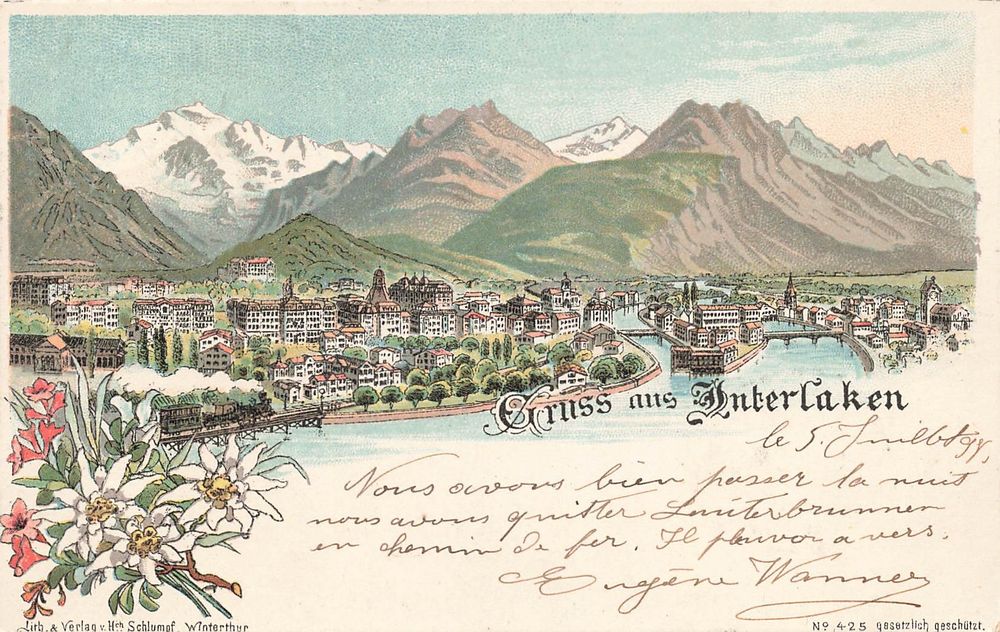 Gruss aus Interlaken
le 5 Juillet 98,
Nous avons bien passer la nuit
nous avons quitter Lauterbrunnen
en chemin de fer. Il pleuvoa a vers.
Eugène Wanner
Lith. & Verlag v. Hch Schlumpf, Winterthur
No 425 gesetzlich geschützt.